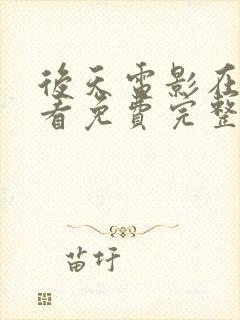 後天雷影在
看免費完整
苗圩